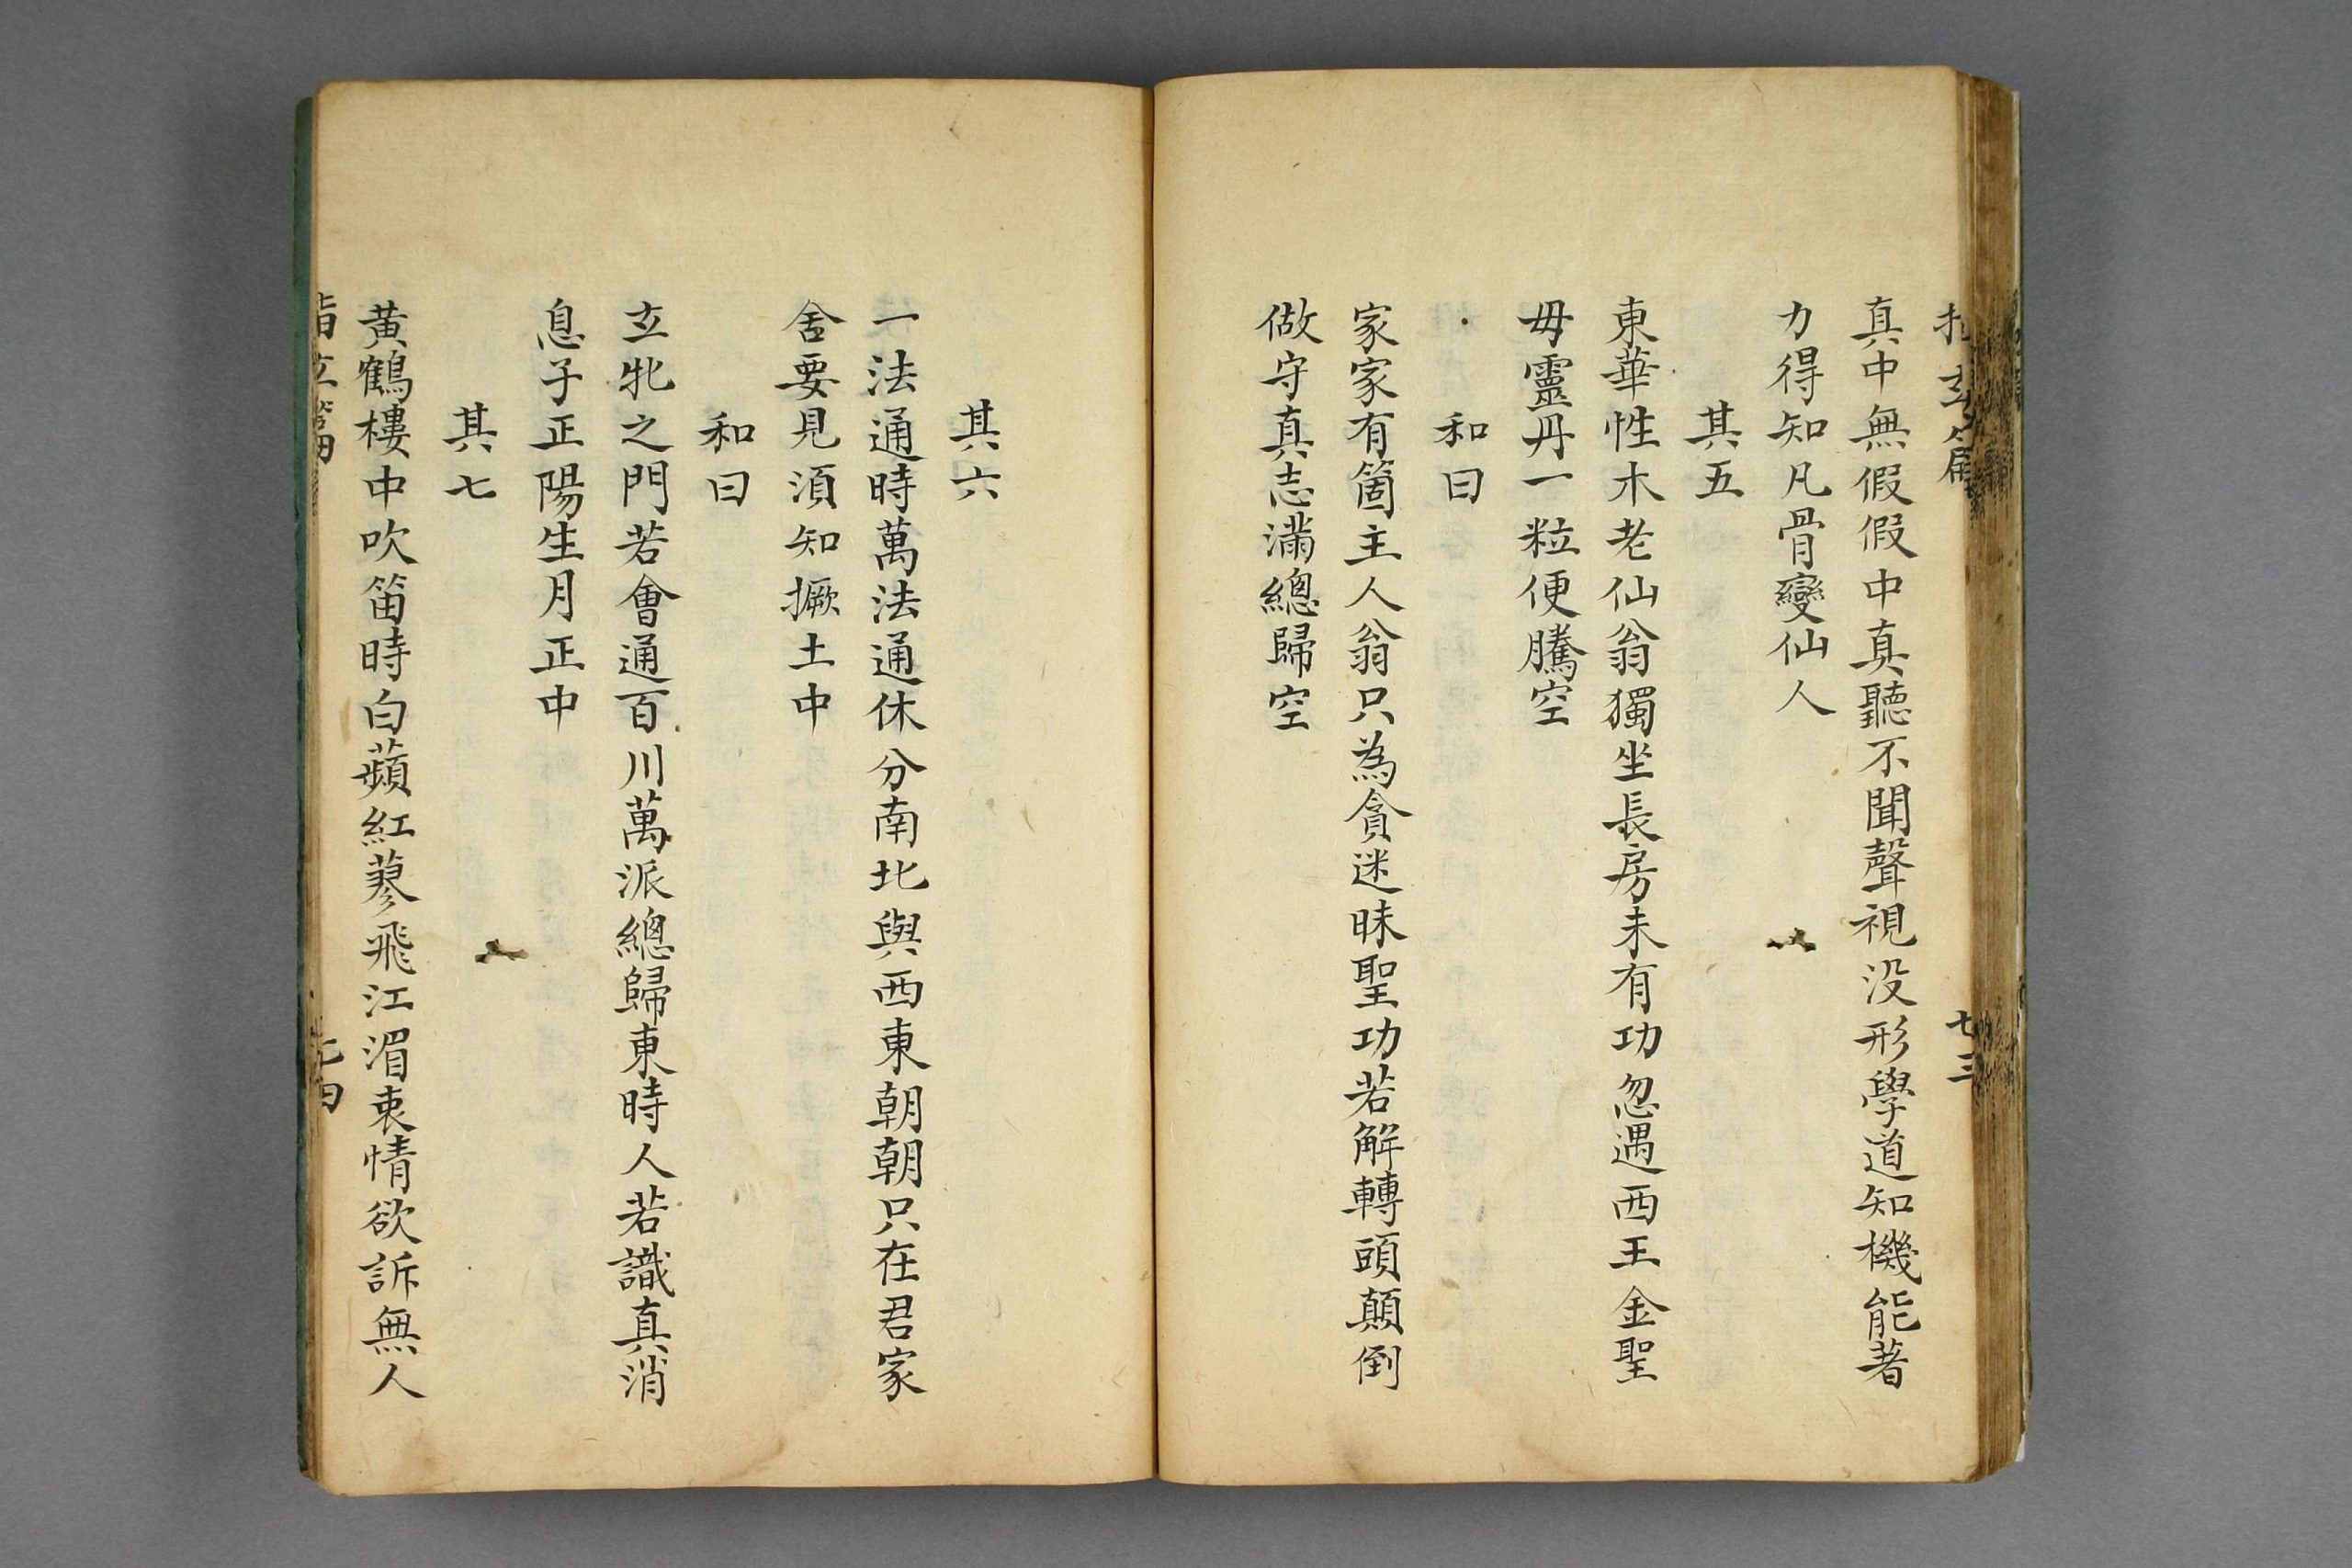 指玄篇 七三
真中無假假中真聽不聞聲視没形學道知機能著
力得知凡骨變仙人
其五
東華性木老仙翁獨坐長房未有功忽遇西王金聖
毋靈丹一粒便騰空
和曰
家家有箇主人翁只為貪迷昧聖功若解轉頭顛倒
做守真志滿總歸空
其六
一法通時萬法通休分南北與西東朝朝只在君家
舍要見須知撅土中
和曰
玄牝之門若會通百川萬派總歸東時人若識真消
息子正陽生月正中
其七
黃鶴樓中吹笛時白蘋紅蓼飛江湄衷情欲訴無人
指玄篇 七四